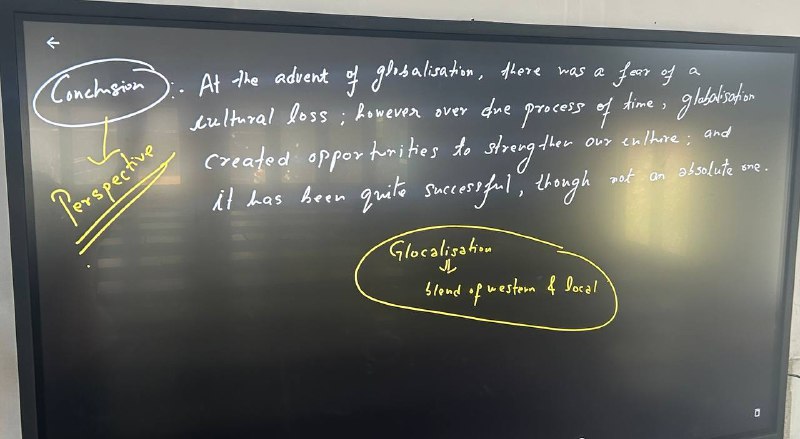 Conclusion :. At the advent of globalisation, there was a fear of a
cultural loss ; however over due process of time, globalisation
created opportunities to strengthen our culture ; and
it has been quite successful, though not an absolute one.
Perspective
Glocalisation
blend of western & local